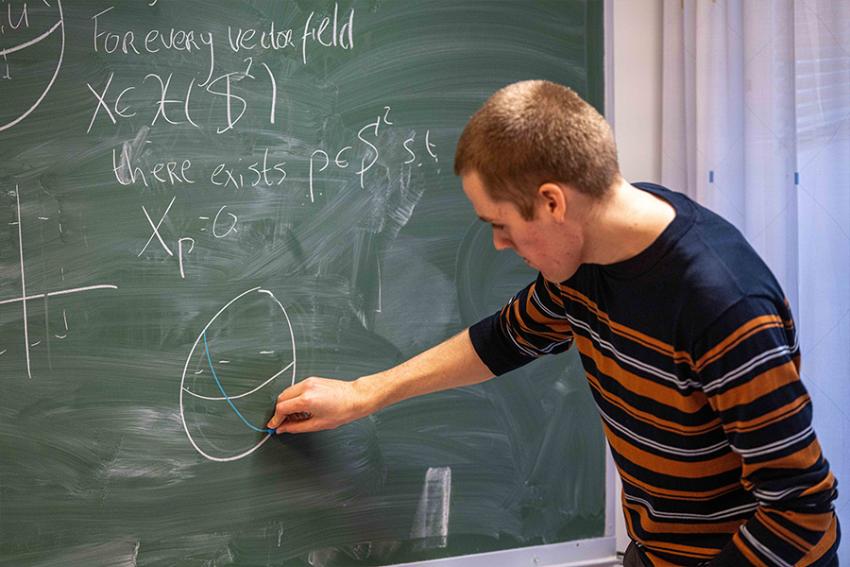 For every vector field
X ∈ 𝔛(𝕊²)
there exists p ∈ 𝕊² s.t.
Xₚ = 0